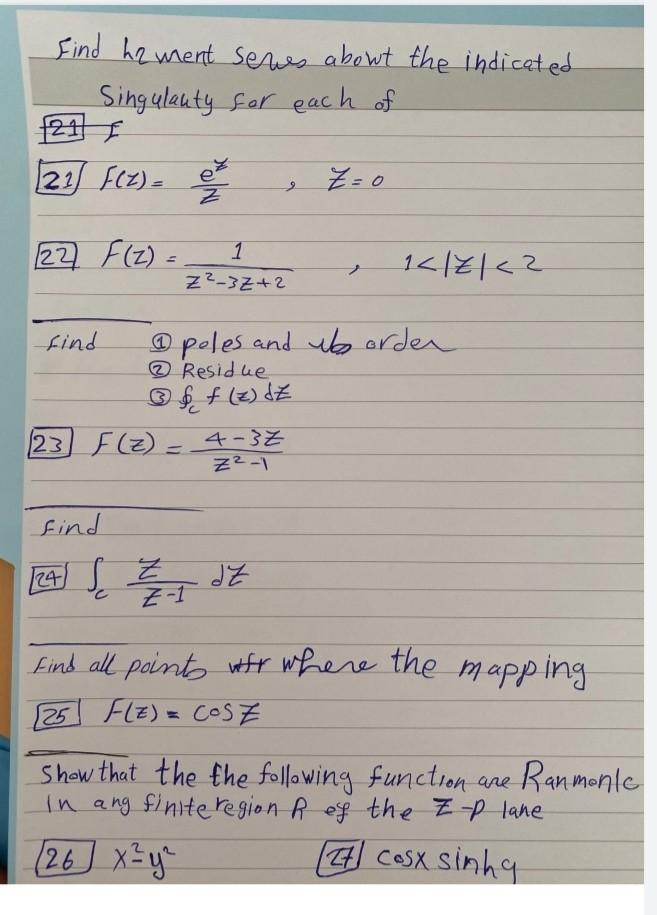 Find h2ment senes abowt the indicated
Singulauty for each of
21 F
21 F(Z) = e^z/Z , Z=0
22 F(Z) = 1/(Z²-3Z+2) , 1<|Z|<2
Find ① poles and order
② Residue
③ ∮c f(z) dZ
23 F(Z) = (4-3Z)/(Z²-1)
Find
24 ∫c Z/(Z-1) dZ
Find all points where the mapping
25 F(Z) = cosZ
Show that the the following function are Ranmonic
in ang finite region R of the Z-plane
26 x²-y² 27 cosx sinhy